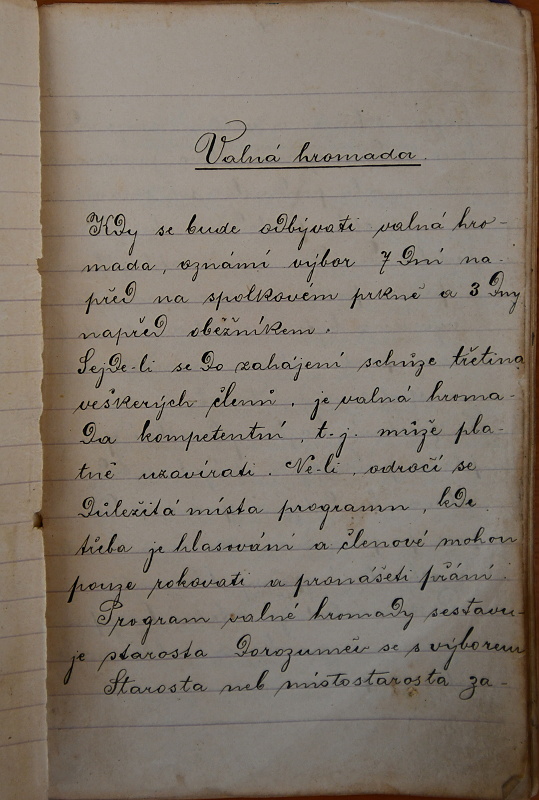 Valná hromada.
Kdy se bude odbývati valná hro-
mada, oznámí výbor 7 dní na-
před na spolkovém prkně a 3 dny
napřed oběžníkem.
Sejde-li se do zahájení schůze třetina
veškerých členů, je valná hroma-
da kompetentní, t.-j. může pla-
tně uzavírati. Ne-li, odročí se
důležitá místa programu, kde
třeba je hlasování a členové mohou
pouze rokovati a pronášeti přání.
Program valné hromady sestavu-
je starosta dorozuměv se s výborem
Starosta neb místostarosta za-